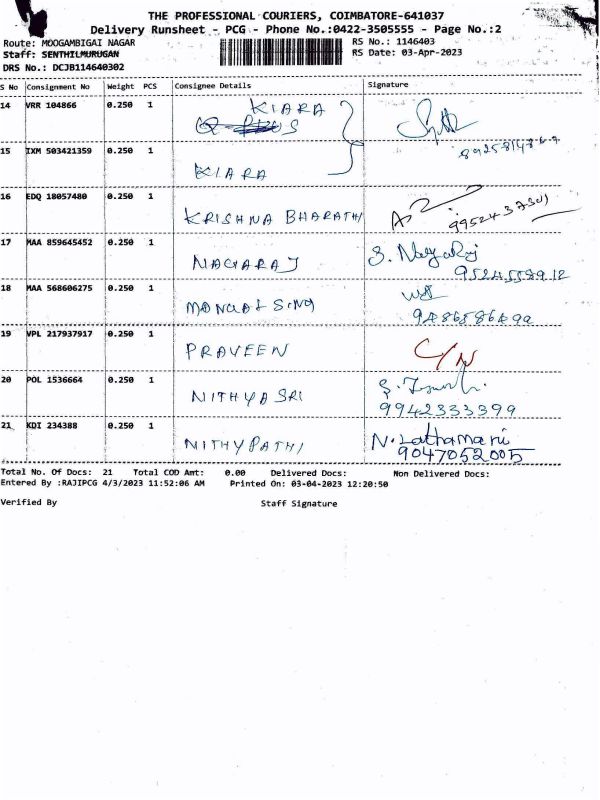 THE PROFESSIONAL COURIERS, COIMBATORE-641037
Delivery Runsheet - PCG - Phone No.:0422-3505555 - Page No.:2
Route: MOOGAMBIGAI NAGAR RS No.: 1146403
Staff: SENTHILMURUGAN RS Date: 03-Apr-2023
DRS No.: DCJB114640302
S No Consignment No Weight PCS Consignee Details Signature
14 VRR 104866 0.250 1 KIARA
15 IXM 503421359 0.250 1 KIARA
16 EDQ 18057480 0.250 1 KRISHNA BHARATHI
17 MAA 859645452 0.250 1 NAGARAJ S. Nagaraj
9524558912
18 MAA 568606275 0.250 1 MANGAL SING
9486586499
19 VPL 217937917 0.250 1 PRAVEEN C/N
20 POL 1536664 0.250 1 NITHYASRI
9942333399
21 KDI 234388 0.250 1 NITHYPATHI N. Lathamani
9047052005
Total No. Of Docs: 21 Total COD Amt: 0.00 Delivered Docs: Non Delivered Docs:
Entered By :RAJIPCG 4/3/2023 11:52:06 AM Printed On: 03-04-2023 12:20:50
Verified By Staff Signature